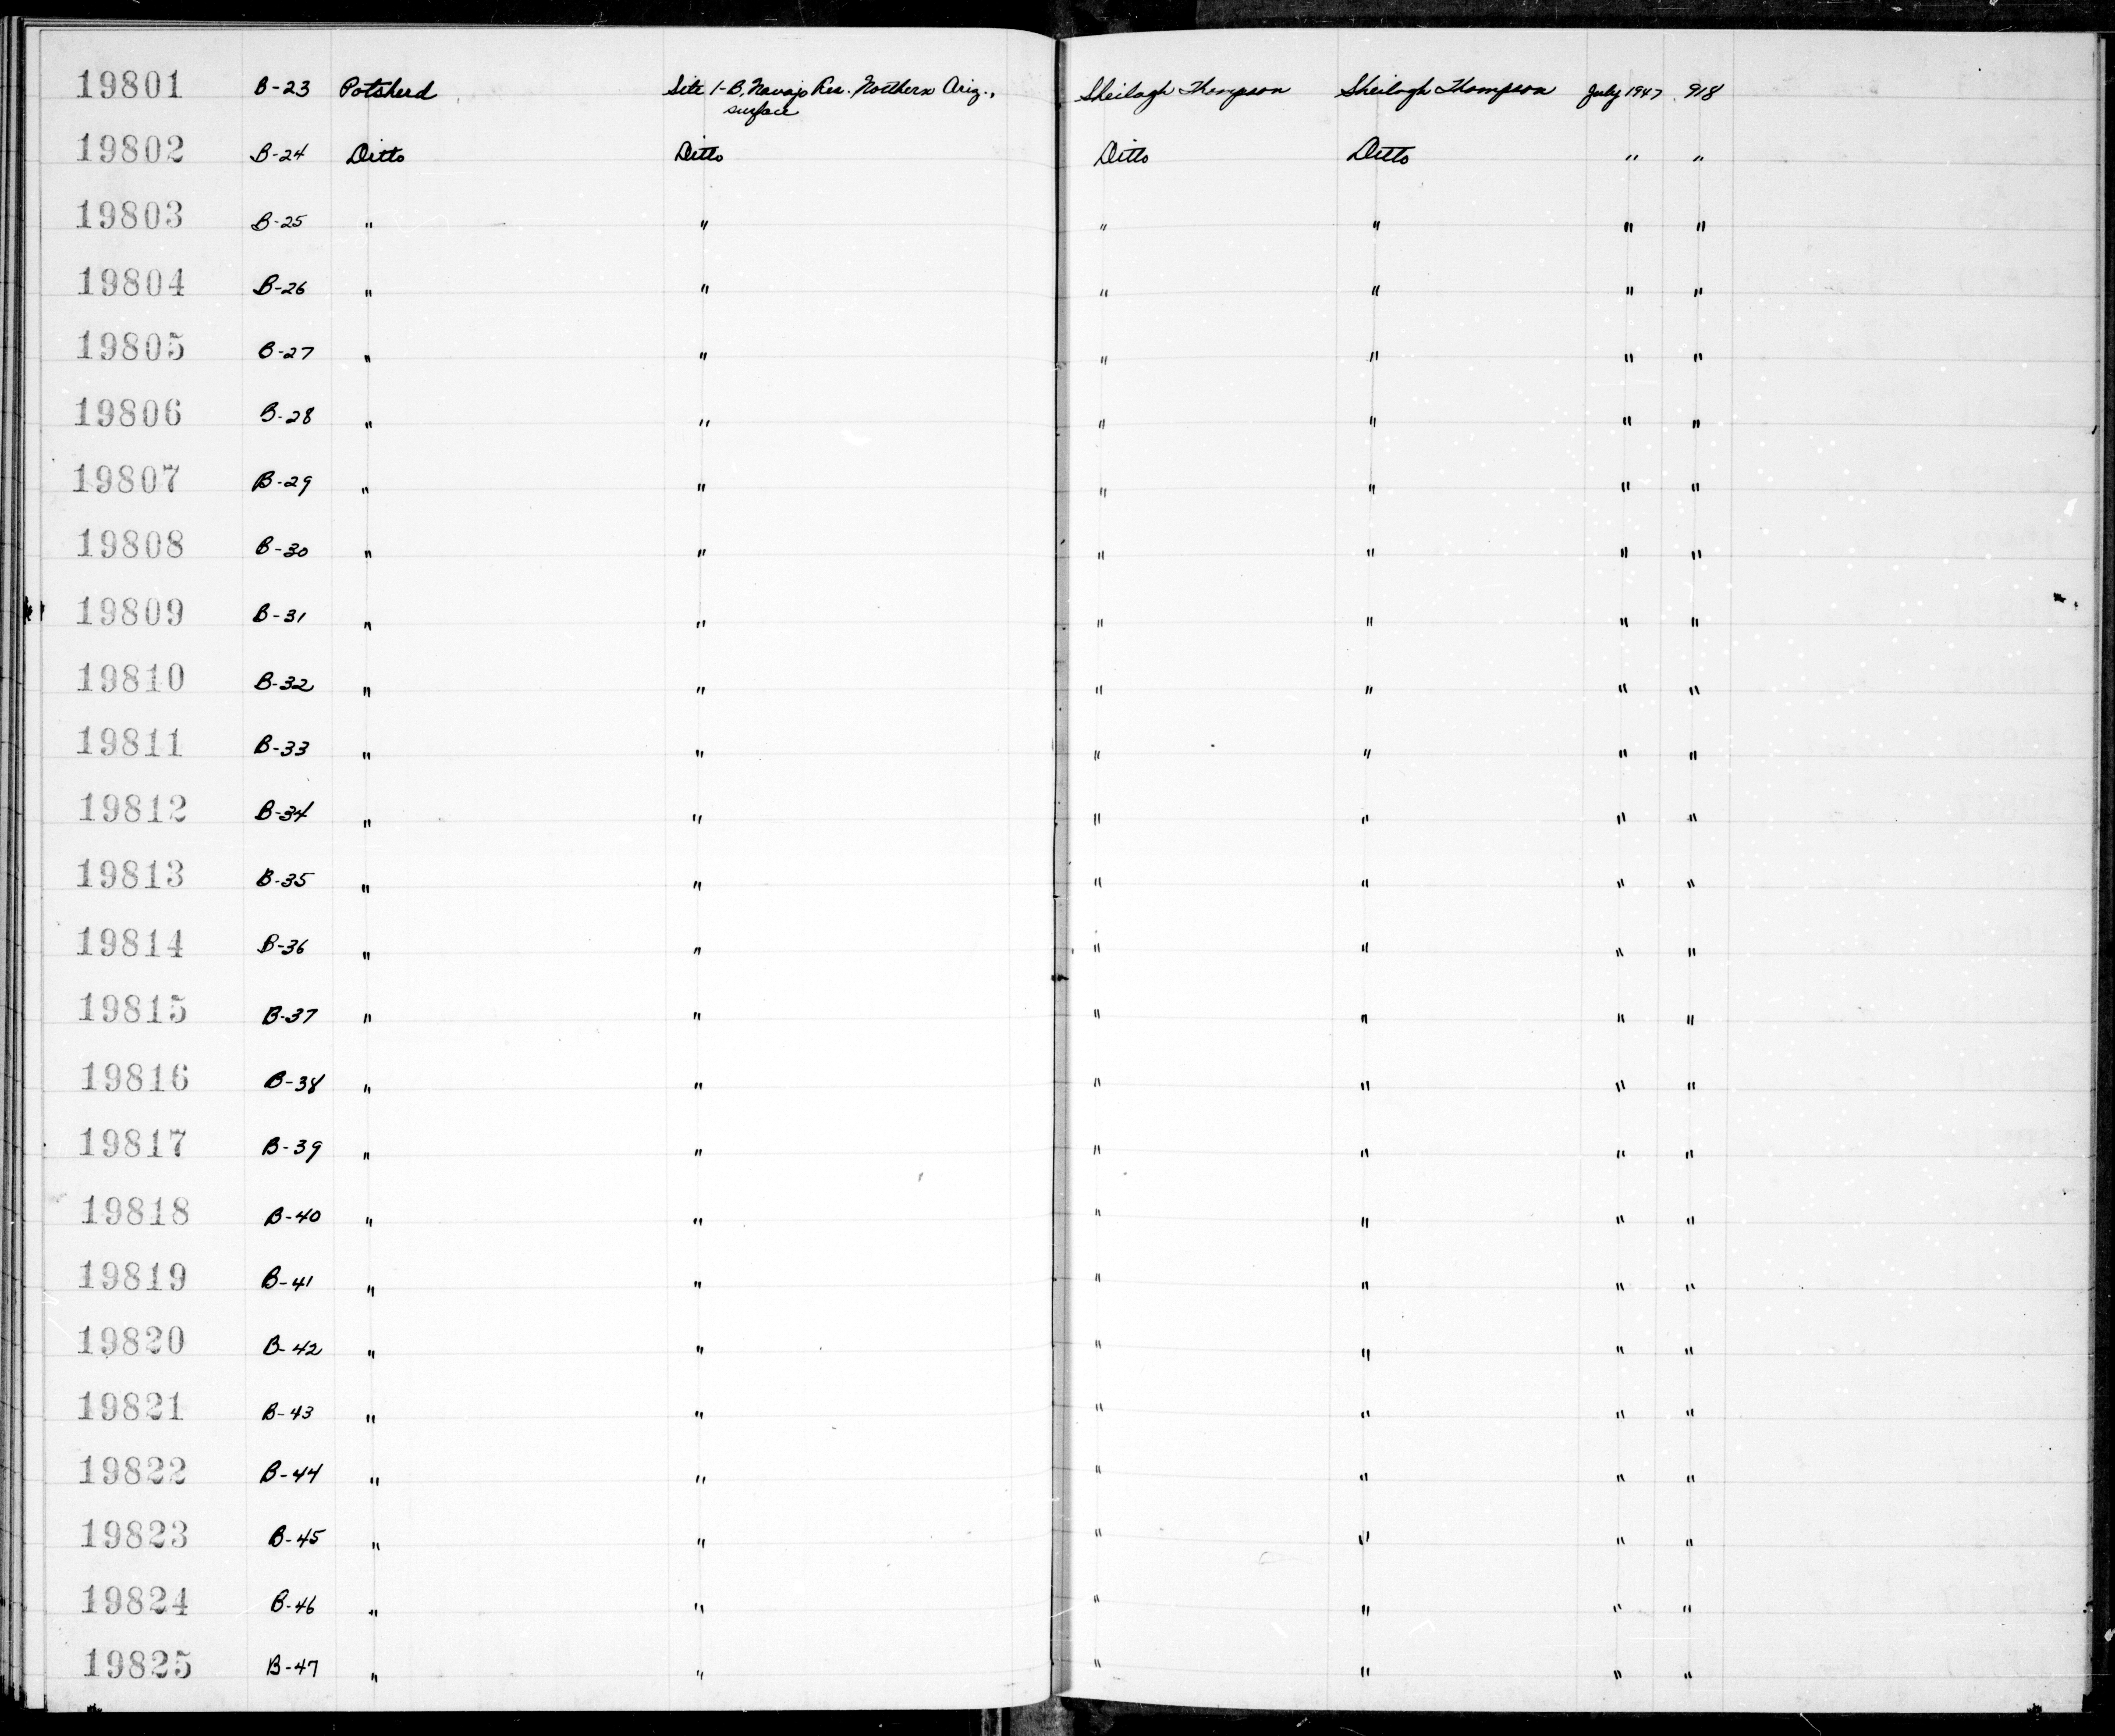 19801 B-23 Potsherd Site 1-B, Navajo Res. Northern Ariz., Sheilagh Thompson Sheilagh Thompson July 1947 918
surface
19802 B-24 Ditto Ditto Ditto Ditto " "
19803 B-25 " " " " " "
19804 B-26 " " " " " "
19805 B-27 " " " " " "
19806 B-28 " " " " " "
19807 B-29 " " " " " "
19808 B-30 " " " " " "
19809 B-31 " " " " " "
19810 B-32 " " " " " "
19811 B-33 " " " " " "
19812 B-34 " " " " " "
19813 B-35 " " " " " "
19814 B-36 " " " " " "
19815 B-37 " " " " " "
19816 B-38 " " " " " "
19817 B-39 " " " " " "
19818 B-40 " " " " " "
19819 B-41 " " " " " "
19820 B-42 " " " " " "
19821 B-43 " " " " " "
19822 B-44 " " " " " "
19823 B-45 " " " " " "
19824 B-46 " " " " " "
19825 B-47 " " " " " "